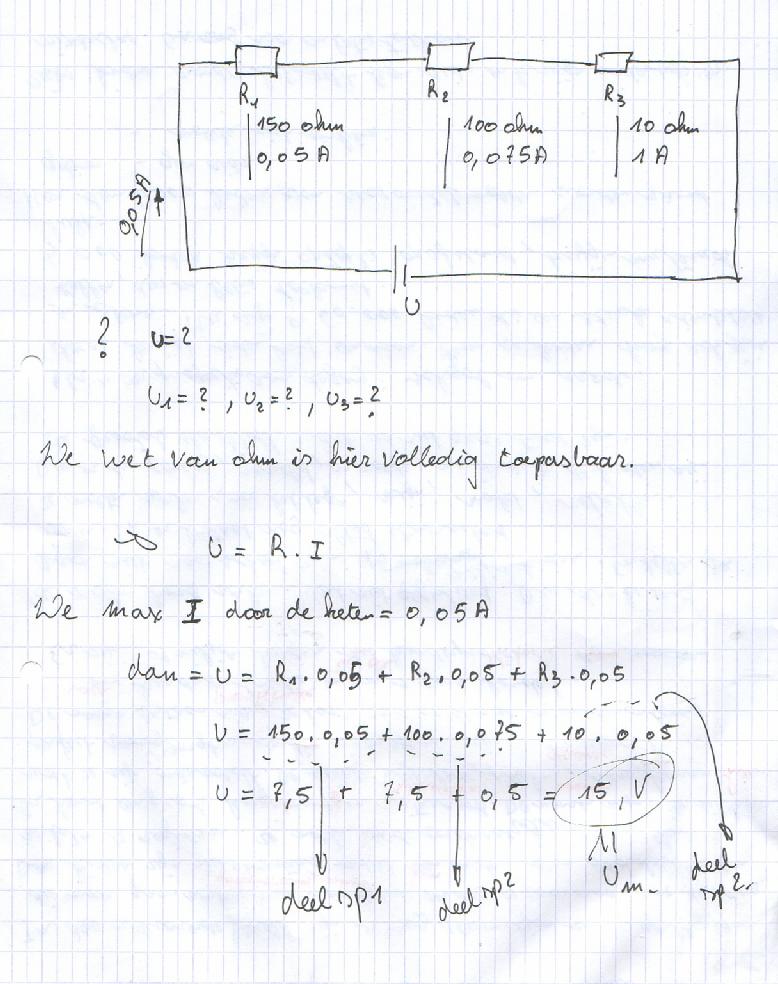 R1 R2 R3
150 ohm 100 ohm 10 ohm
0,05 A 0,075A 1 A
0,05A
U
? U= ?
U1 = ? , U2 = ? , U3 = ?
De wet van ohm is hier volledig toepasbaar.
U = R . I
De max I door de keten = 0,05A
dan = U = R1 . 0,05 + R2 . 0,05 + R3 . 0,05
U = 150 . 0,05 + 100 . 0,075 + 10 . 0,05
U = 7,5 + 7,5 + 0,5 = 15, V
Um.
deel sp1 deel sp2 deel sp2.